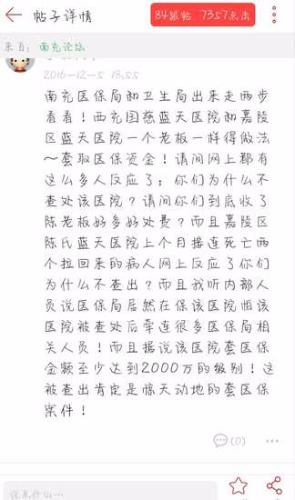 帖子详情
84跟帖 7357点击
来自：南充论坛
2016-12-5 18:55
南充医保局和卫生局出来走两步
看看！西充国慈蓝天医院和嘉陵
区蓝天医院一个老板一样得做法
～套取医保资金！请问网上都有
这么多人反应了；你们为什么不
查处该医院？请问你们到底收了
陈老板好多好处费？而且嘉陵区
陈氏蓝天医院上个月接连死亡两
个拉回来的病人网上反应了你们
为什么不查出？而且我听内部人
员说医保局居然在保该医院怕该
医院被查处后牵连很多医保局相
关人员！而且据说该医院套医保
金额至少达到2000万的级别！这
被查出肯定是惊天动地的套医保
案件！
(0)
说点什么...